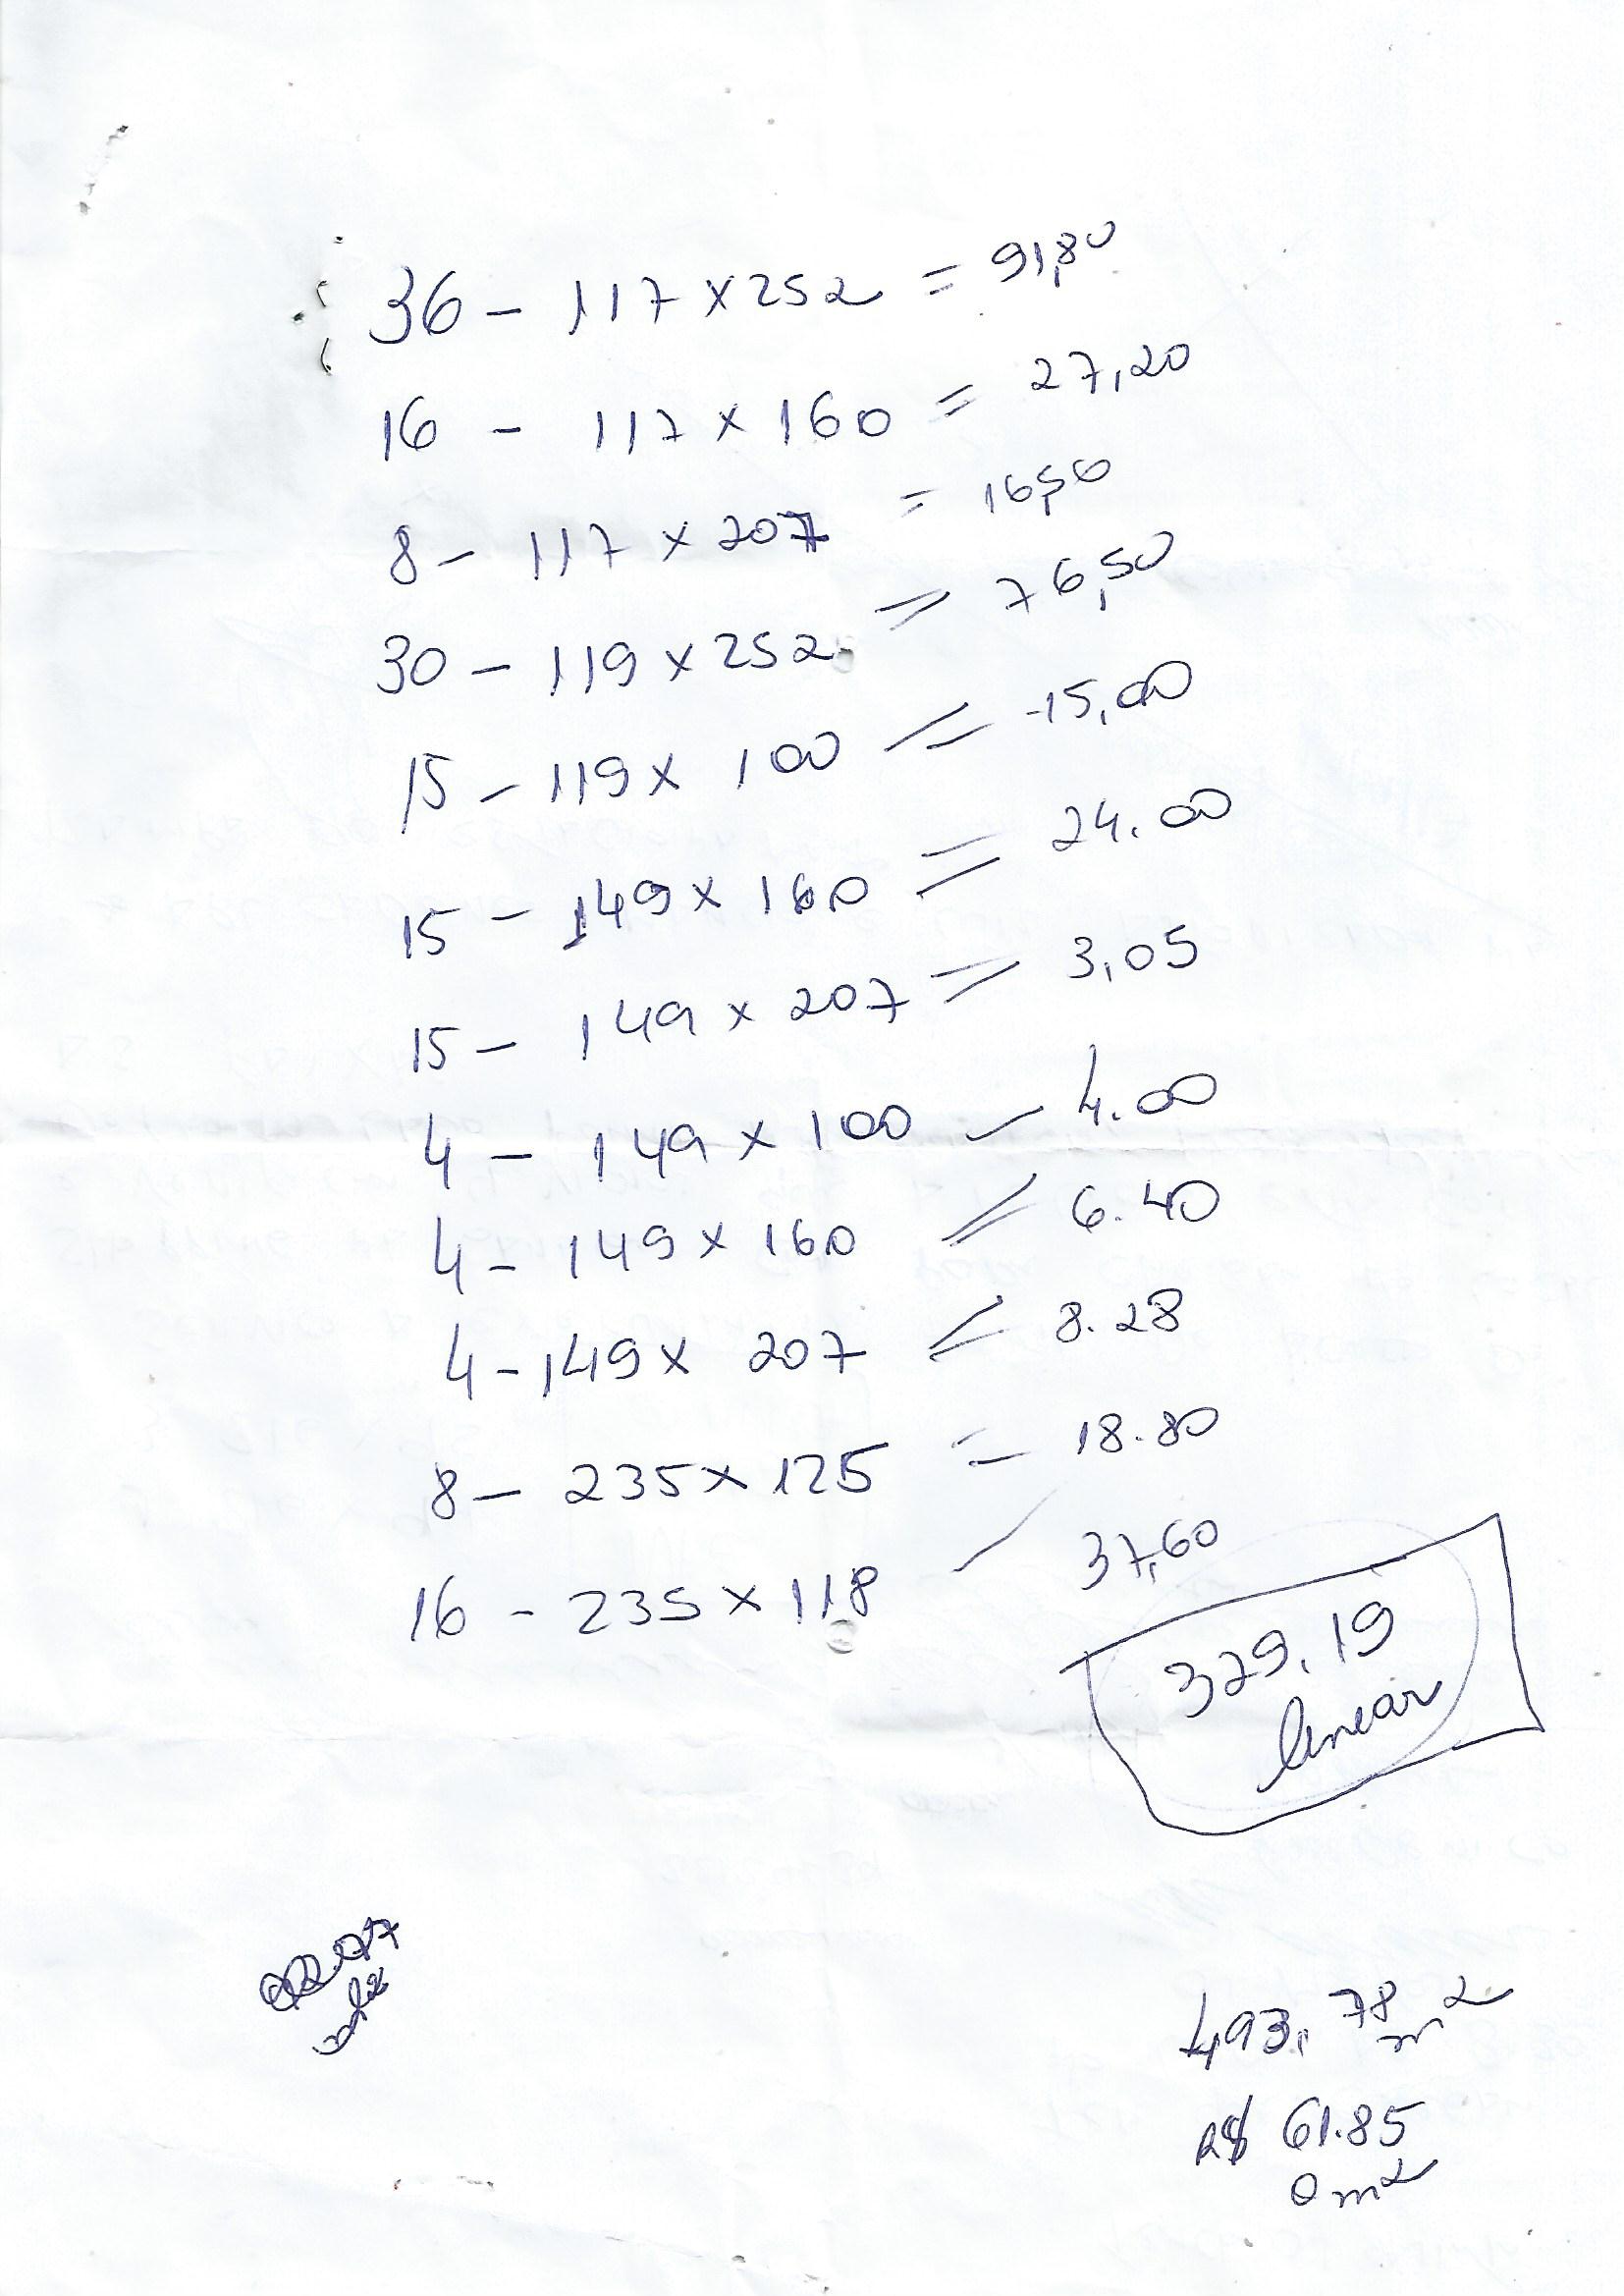 36 - 117 x 252 = 91,80
16 - 117 x 160 = 27,20
8 - 117 x 207 = 16,50
30 - 119 x 252 = 76,50
15 - 119 x 100 = 15,00
15 - 149 x 160 = 24.00
15 - 149 x 207 = 3,05
4 - 149 x 100 - 4.00
4 - 149 x 160 = 6.40
4 - 149 x 207 = 8.28
8 - 235 x 125 = 18.80
16 - 235 x 118 - 37,60
329,19
linear
493,78 m2
R$ 61.85
o m2